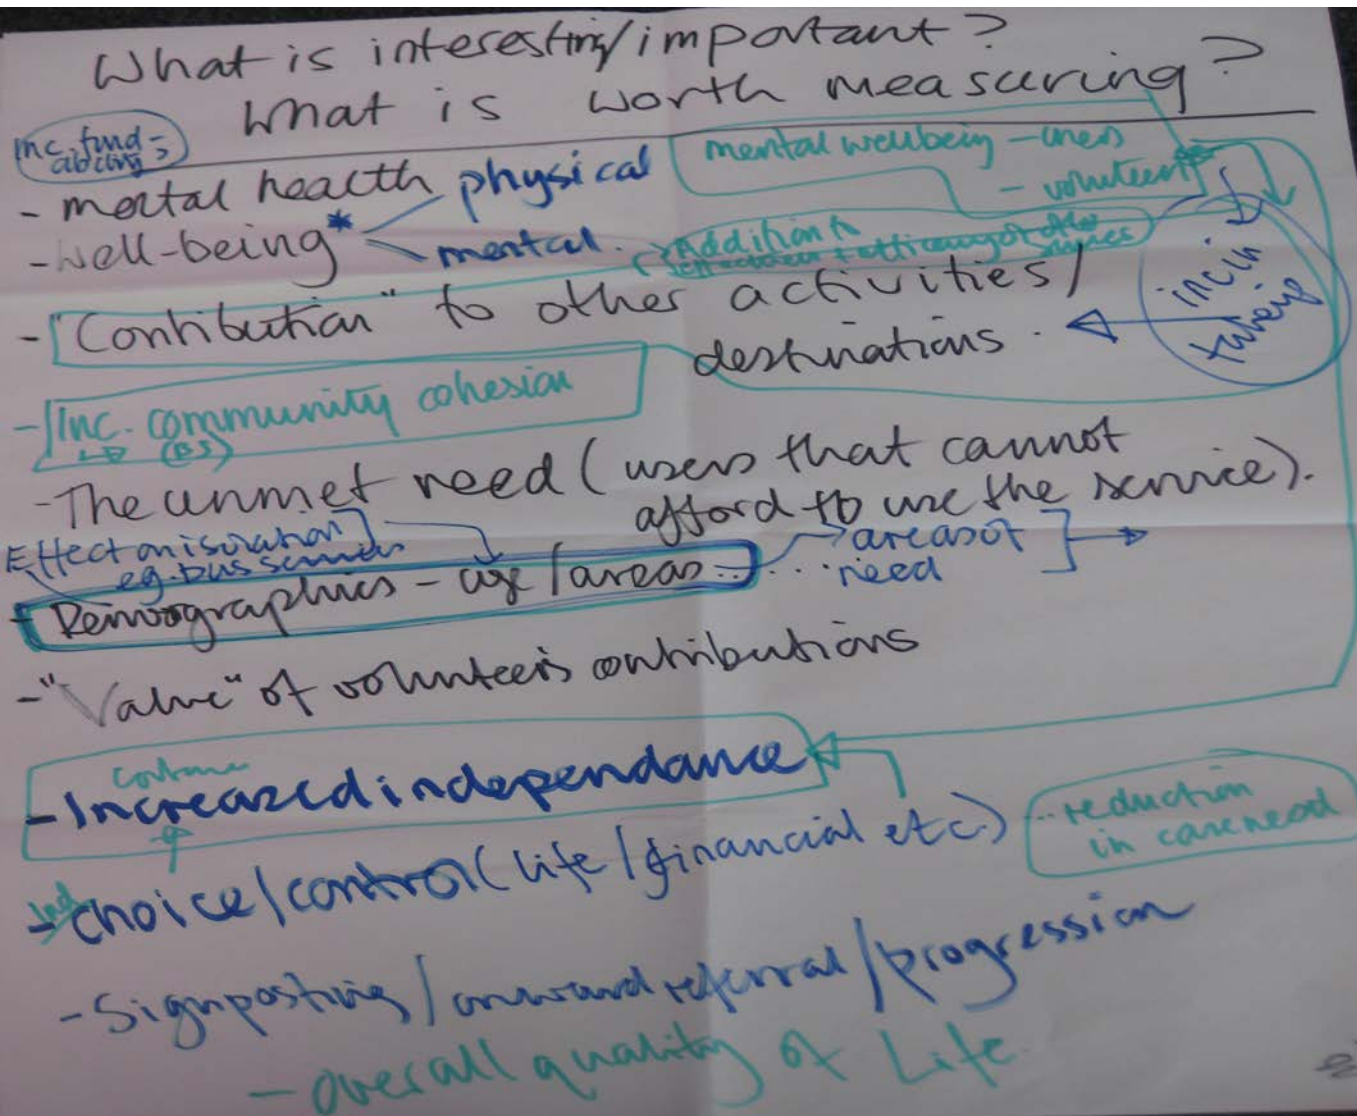 What is interesting/important?
What is worth measuring?
Inc. fund-
- mental health physical
mental wellbeing - users
- volunteers
- Well-being* mental.
Addition to
- "Contribution" to other activities/
destinations.
inc in
- Inc. community cohesion
(BS)
- The unmet need (users that cannot
afford to use the service).
Effect on isolation
eg. bus services
areas of
need
- Demographics - age/areas
- "Value" of volunteers contributions
- Increased independance
- choice/control (life/financial etc)
...reduction
in care need
- Signposting/onward referral/progression
- overall quality of Life.